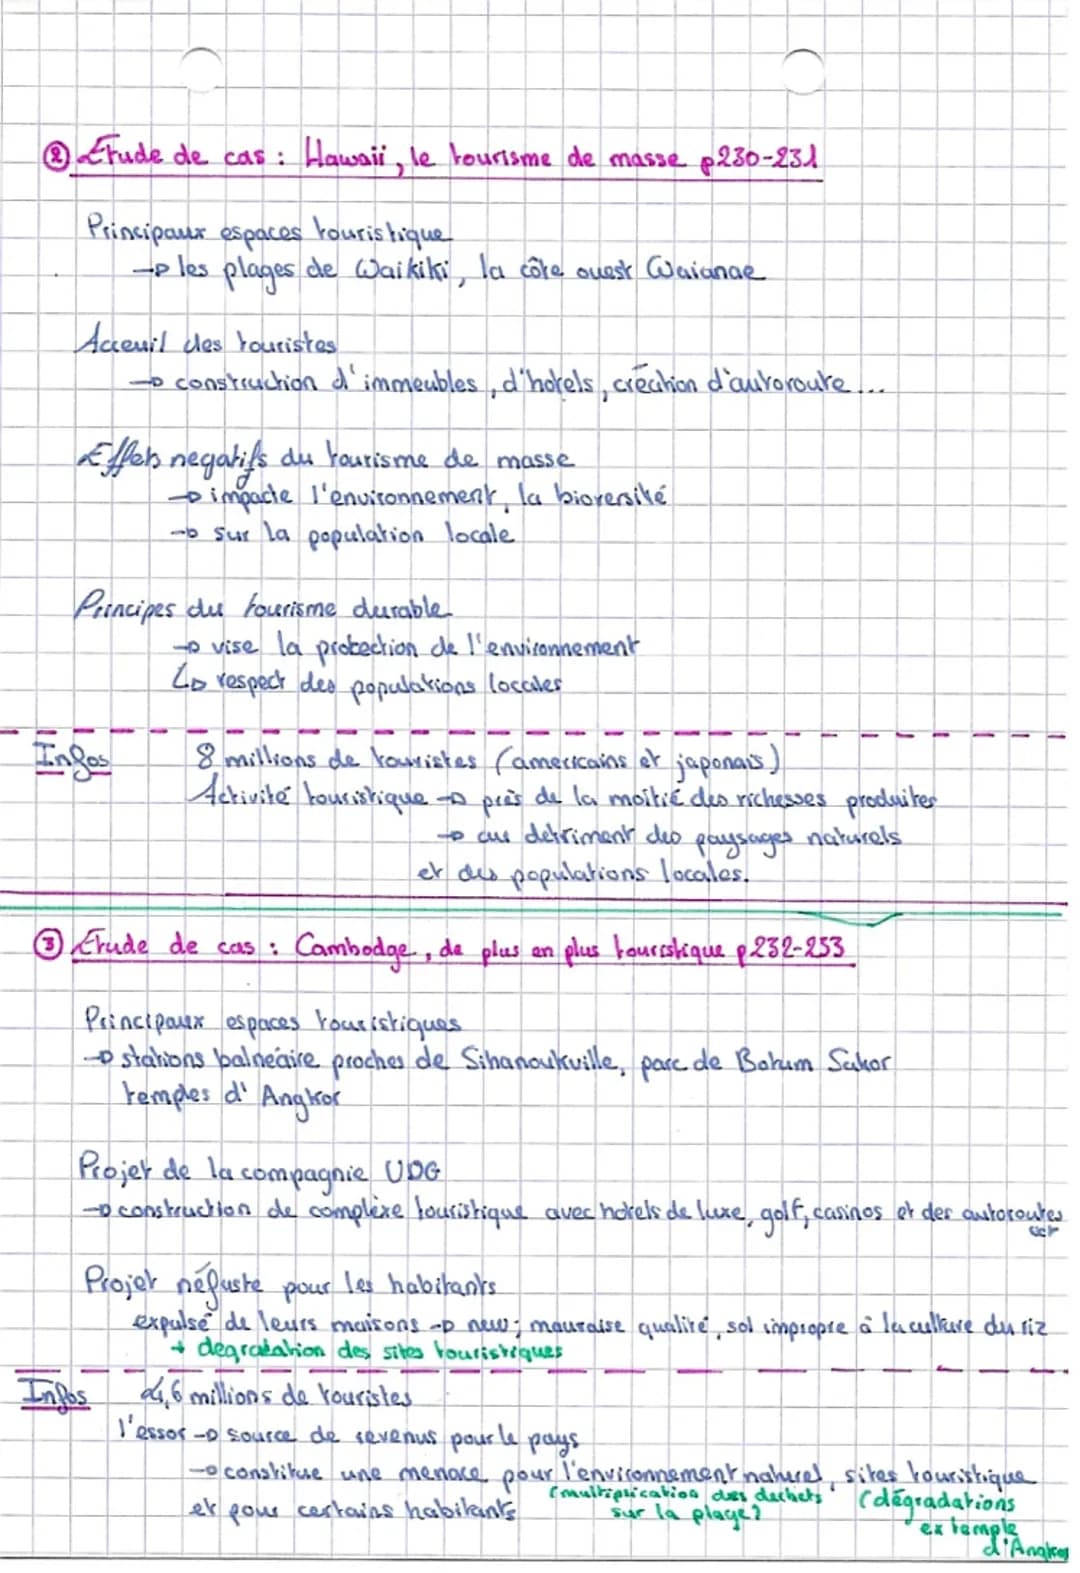 ② Étude de cas : Hawaii, le tourisme de masse p230-231
Principaux espaces touristique
→ les plages de Waikiki, la côte ouest Waianae
Acceuil des touristes
→ construction d'immeubles, d'hotels, création d'autoroute...
Effets negatifs du tourisme de masse
→ impacte l'environnement, la bioversité
→ sur la population locale
Principes du tourisme durable
→ vise la protection de l'environnement
↳ respect des populations locales
Infos 8 millions de touristes (americains et japonais)
Activité touristique → près de la moitié des richesses produites
→ au detriment des paysages naturels
et des populations locales.
③ Étude de cas : Cambodge, de plus en plus touristique p232-253
Principaux espaces touristiques
→ stations balnéaire proches de Sihanoukville, parc de Botum Sakor
temples d'Angkor
Projet de la compagnie UDG
→ construction de complèxe touristique avec hotels de luxe, golf, casinos et des autoroutes
ect
Projet néfaste pour les habitants
expulsé de leurs maisons → new ; mauvaise qualité, sol impropre à la culture du riz
+ degradation des sites touristiques
Infos 4,6 millions de touristes
l'essor → source de revenus pour le pays
→ constitue une menace pour l'environnement naturel, sites touristique
(multiplication des dechets (dégradations
et pour certains habitants sur la plage) ex temple
d'Angkor